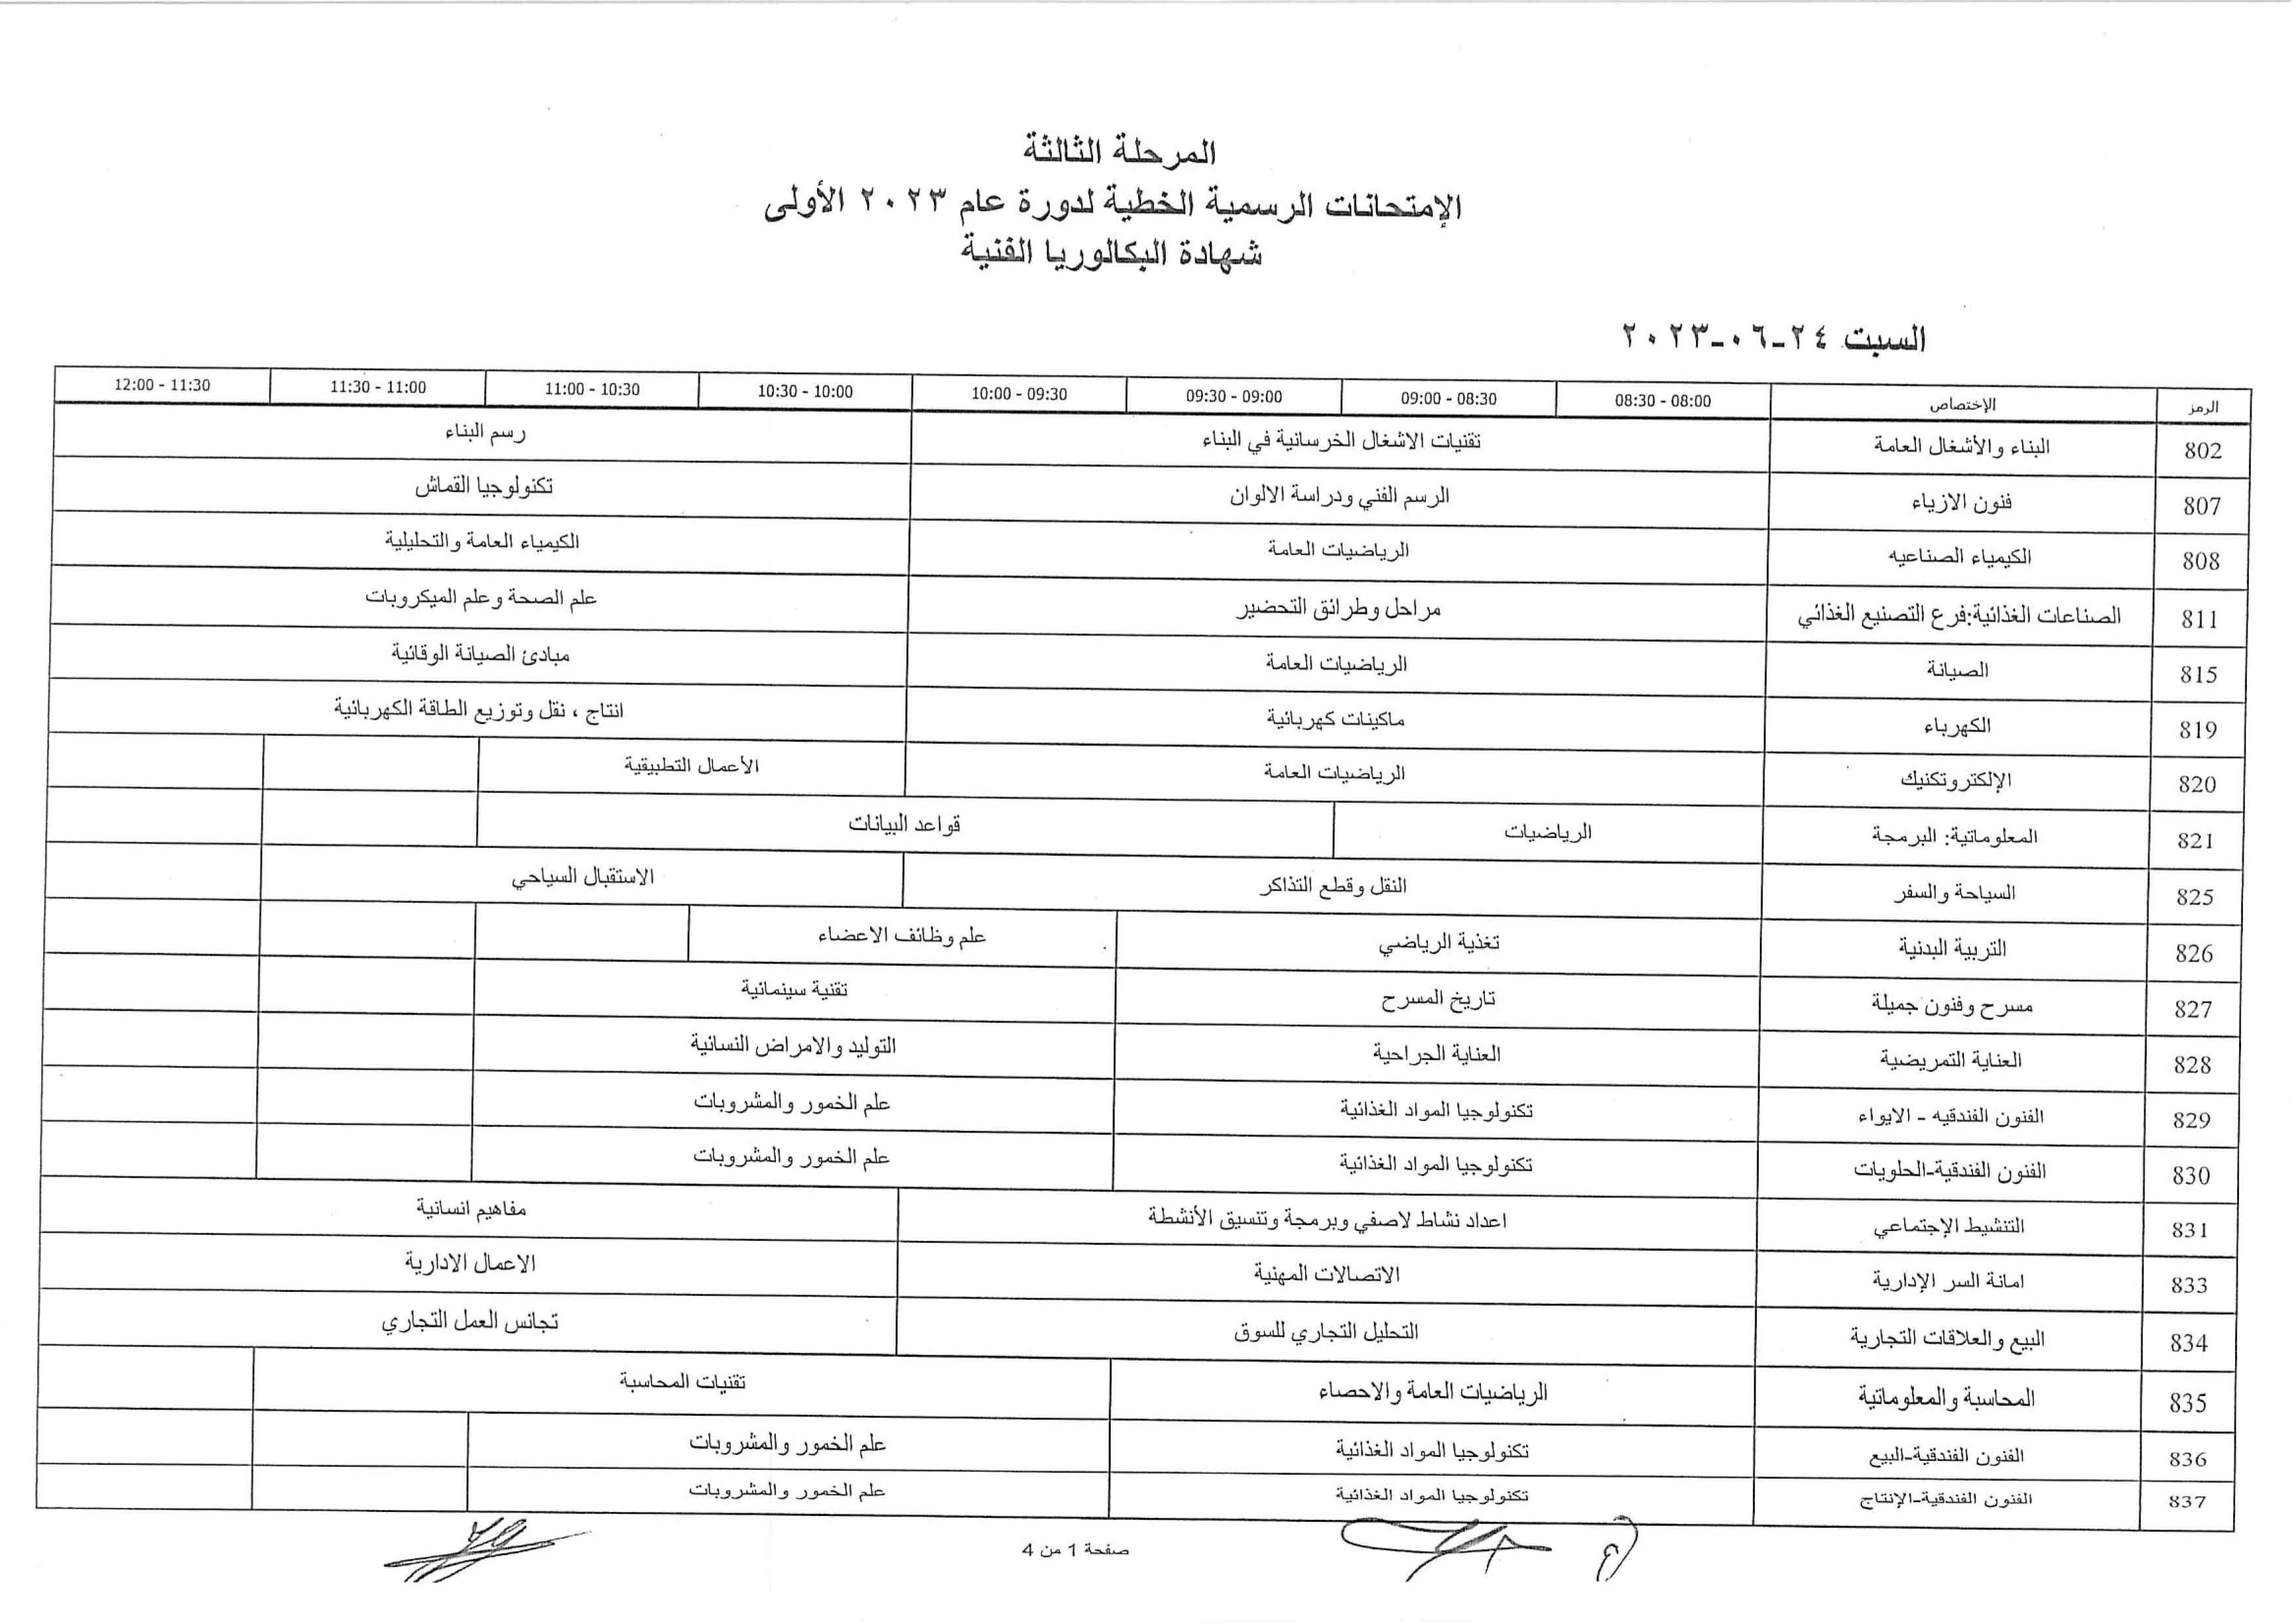 المرحلة الثالثة
الإمتحانات الرسمية الخطية لدورة عام ٢٠٢٣ الأولى
شهادة البكالوريا الفنية
السبت ٢٤-٠٦-٢٠٢٣
الرمز الإختصاص 08:00 - 08:30 08:30 - 09:00 09:00 - 09:30 09:30 - 10:00 10:00 - 10:30 10:30 - 11:00 11:00 - 11:30 11:30 - 12:00
802 البناء والأشغال العامة تقنيات الاشغال الخرسانية في البناء رسم البناء
807 فنون الازياء الرسم الفني ودراسة الالوان تكنولوجيا القماش
808 الكيمياء الصناعيه الرياضيات العامة الكيمياء العامة والتحليلية
811 الصناعات الغذائية:فرع التصنيع الغذائي مراحل وطرائق التحضير علم الصحة وعلم الميكروبات
815 الصيانة الرياضيات العامة مبادئ الصيانة الوقائية
819 الكهرباء ماكينات كهربائية انتاج ، نقل وتوزيع الطاقة الكهربائية
820 الإلكتروتكنيك الرياضيات العامة الأعمال التطبيقية
821 المعلوماتية: البرمجة الرياضيات قواعد البيانات
825 السياحة والسفر النقل وقطع التذاكر الاستقبال السياحي
826 التربية البدنية تغذية الرياضي علم وظائف الاعضاء
827 مسرح وفنون جميلة تاريخ المسرح تقنية سينمائية
828 العناية التمريضية العناية الجراحية التوليد والامراض النسائية
829 الفنون الفندقيه - الايواء تكنولوجيا المواد الغذائية علم الخمور والمشروبات
830 الفنون الفندقية-الحلويات تكنولوجيا المواد الغذائية علم الخمور والمشروبات
831 التنشيط الإجتماعي اعداد نشاط لاصفي وبرمجة وتنسيق الأنشطة مفاهيم انسانية
833 امانة السر الإدارية الاتصالات المهنية الاعمال الادارية
834 البيع والعلاقات التجارية التحليل التجاري للسوق تجانس العمل التجاري
835 المحاسبة والمعلوماتية الرياضيات العامة والاحصاء تقنيات المحاسبة
836 الفنون الفندقية-البيع تكنولوجيا المواد الغذائية علم الخمور والمشروبات
837 الفنون الفندقية-الإنتاج تكنولوجيا المواد الغذائية علم الخمور والمشروبات
صفحة 1 من 4